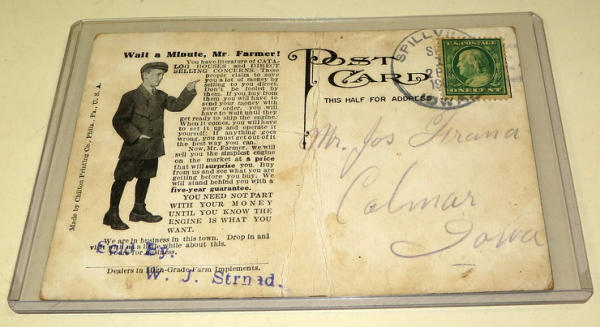 Wait a Minute, Mr. Farmer!
You have literature of CATA-
LOG HOUSES and DIRECT
SELLING CONCERNS. These
people claim to save
you a lot of money by
selling to you direct.
Don't be fooled by
them. If you buy from
them you will have to
send your money with
your order, you will
have to wait until they
get ready to ship the engine.
When it comes, you will have
to set it up and operate it
yourself; if anything goes
wrong, you must get out of it
the best way you can.
Now, Mr. Farmer, we will
sell you the simplest engine
on the market at a price
that will surprise you. Buy
from us and see what you are
getting before you buy. We
will stand behind you with a
five-year guarantee.
YOU NEED NOT PART
WITH YOUR MONEY
UNTIL YOU KNOW THE
ENGINE IS WHAT YOU
WANT.
We are in business in this town. Drop in and
about this.
Dealers in High-Grade Farm Implements.
W. J. Strnad.
Made by Chilton Printing Co., Phila., Pa., U. S. A.
POST CARD
THIS HALF FOR ADDRESS
SPILLVILLE
IOWA
U.S. POSTAGE
ONE CENT
Mr. Jos
Colmar
Iowa